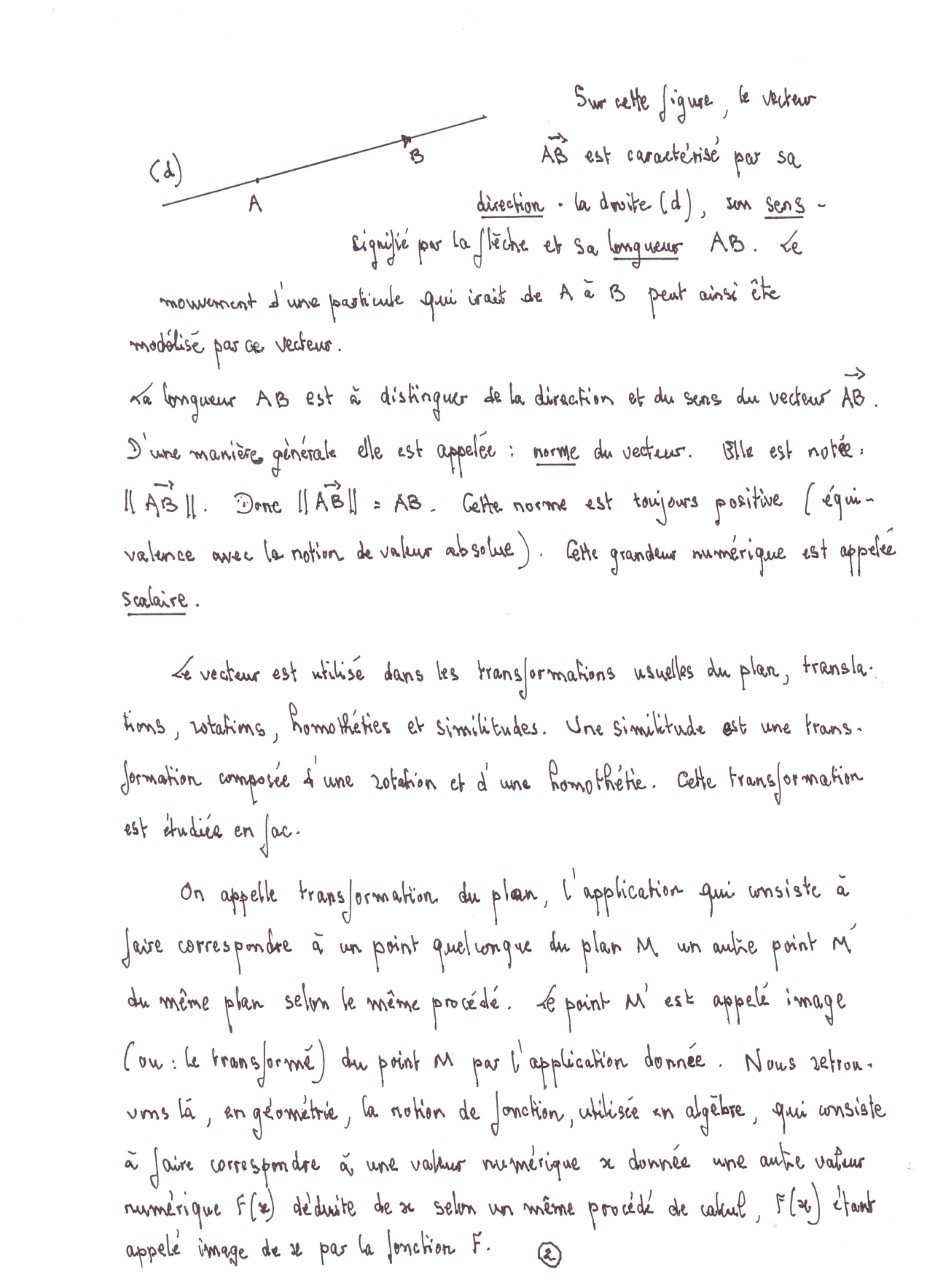 Sur cette figure, le vecteur
(d) A B
AB est caractérisé par sa
direction - la droite (d), son sens -
signifié par la flèche et sa longueur AB. Le
mouvement d'une particule qui irait de A à B peut ainsi ête
modélisé par ce vecteur.
La longueur AB est à distinguer de la direction et du sens du vecteur AB.
D'une manière générale elle est appelée : norme du vecteur. Elle est notée.
||AB||. Donc ||AB|| = AB. Cette norme est toujours positive (équi-
valence avec la notion de valeur absolue). Cette grandeur numérique est appelée
scalaire.
Le vecteur est utilisé dans les transformations usuelles du plan, transla-
tions, rotations, homothéties et similitudes. Une similitude est une trans-
formation composée d'une rotation et d'une homothétie. Cette transformation
est étudiée en fac.
On appelle transformation du plan, l'application qui consiste à
faire correspondre à un point quelconque du plan M un autre point M'
du même plan selon le même procédé. Le point M' est appelé image
(ou : le transformé) du point M par l'application donnée. Nous retrou-
vons là, en géométrie, la notion de fonction, utilisée en algèbre, qui consiste
à faire correspondre à une valeur numérique x donnée une autre valeur
numérique F(x) déduite de x selon un même procédé de calcul, F(x) étant
appelé image de x par la fonction F.
2